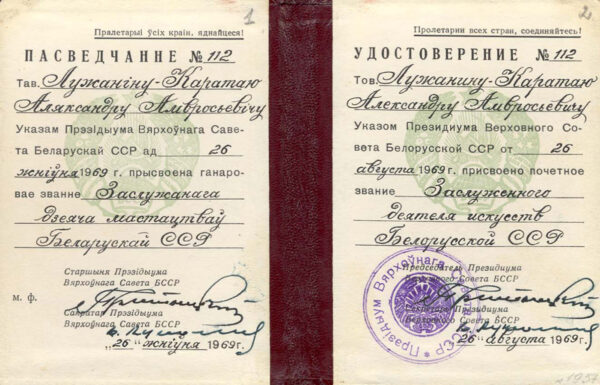 1
Пралетарыі ўсіх краін, яднайцеся!
ПАСВЕДЧАННЕ № 112
Тав. Лужаніну-Каратаю
Аляксандру Амвросьевічу
Указам Прэзідыума Вярхоўнага Саве-
та Беларускай ССР ад 26
жніўня 1969 г. прысвоена ганаро-
вае званне Заслужанага
дзеяча мастацтваў
Беларускай ССР
Старшыня Прэзідыума
Вярхоўнага Савета БССР
м. ф.
Сакратар Прэзідыума
Вярхоўнага Савета БССР
„26“ жніўня 1969г.
2
Пролетарии всех стран, соединяйтесь!
УДОСТОВЕРЕНИЕ № 112
Тов. Лужанину-Каратаю
Александру Амвросьевичу
Указом Президиума Верховного Со-
вета Белорусской ССР от 26
августа 1969 г. присвоено почетное
звание Заслуженного
деятеля искусств
Белорусской ССР
Председатель Президиума
Верховного Совета БССР
Секретарь Президиума
Верховного Совета БССР
„26“ августа 1969г.
Прэзідыум Вярхоўнага БССР